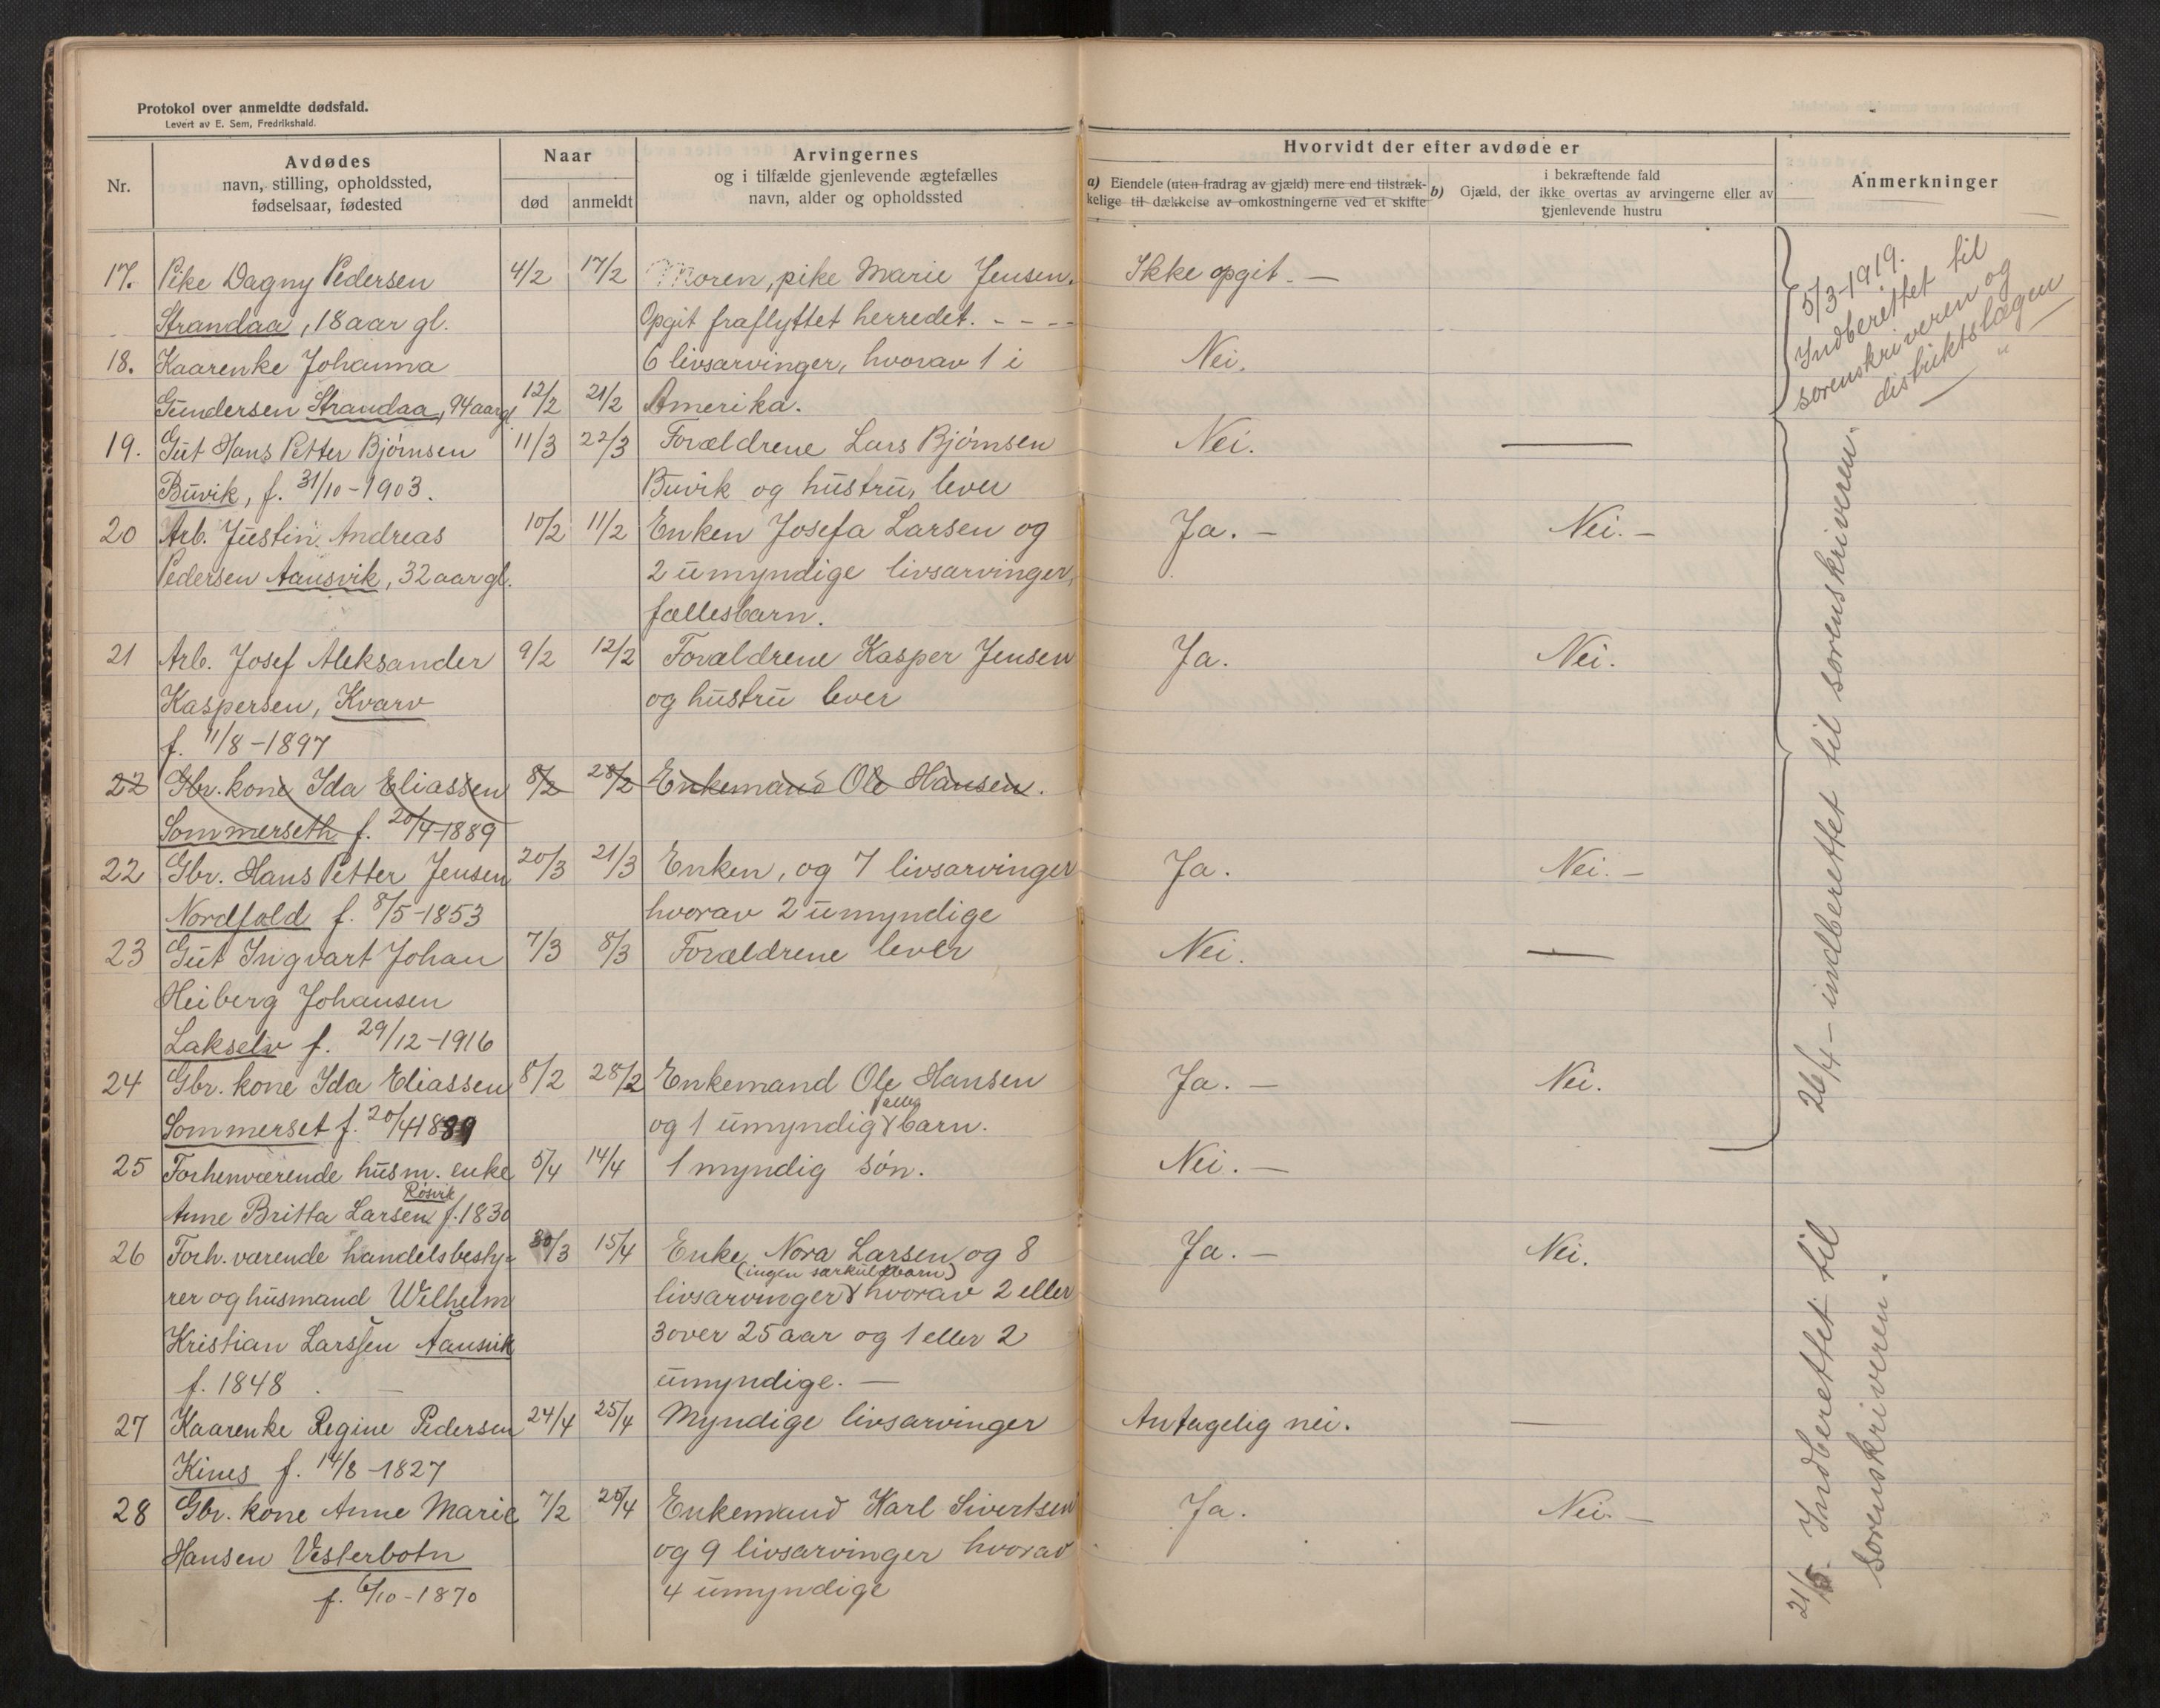 Protokol over anmeldte dødsfald.
Levert av E. Sem, Fredrikshald.
Nr.
Avdødes
navn, stilling, opholdssted,
fødselsaar, fødested
Naar
død
anmeldt
Arvingernes
og i tilfælde gjenlevende ægtefælles
navn, alder og opholdssted
Hvorvidt der efter avdøde er
a) Eiendele (uten fradrag av gjæld) mere end tilstræk-
kelige til dækkelse av omkostningerne ved et skifte
b) Gjæld, der
i bekræftende fald
ikke overtas av arvingerne eller av
gjenlevende hustru
Anmerkninger
17. Pike Dagny Pedersen 4/2 17/2 Moren, pike Marie Jensen. Ikke opgit. —
Strandaa, 18 aar gl. Opgit fraflyttet herredet. - - -
18. Kaarenke Johanna 6 livsarvinger, hvorav 1 i Nei.
Gundersen Strandaa, 94 aar gl 12/2 21/2 Amerika.
5/3-1919.
Indberettet til
sorenskriveren og
distriktslægen
19. Gut Hans Petter Bjørnsen 11/3 22/3 Forældrene Lars Bjørnsen Nei. —
Buvik, f. 31/10-1903. Buvik og hustru, lever
20 Arb. Justin Andreas 10/2 11/2 Enken Josefa Larsen og Ja. — Nei. —
Pedersen Aansvik, 32 aar gl. 2 umyndige livsarvinger,
fællesbarn.
21 Arb. Josef Aleksander 9/2 12/2 Forældrene Kasper Jensen Ja. Nei.
Kaspersen, Kvarv og hustru lever
f. 11/8-1897
22 Gbr. kone Ida Eliassen 8/2 28/2 Enkemand Ole Hansen.
Sommerseth f. 20/4-1889
22 Gbr. Hans Petter Jensen 20/3 21/3 Enken, og 7 livsarvinger Ja. Nei. —
Nordfold f. 8/5-1853 hvorav 2 umyndige
23 Gut Ingvart Johan 7/3 8/3 Forældrene lever Nei. —
Heiberg Johansen
Lakselv f. 29/12-1916
24 Gbr. kone Ida Eliassen 8/2 28/2 Enkemand Ole Hansen Ja. — Nei.
Sommerset f. 20/4 1889 og 1 umyndig fælles barn.
26/4 - indberettet til sorenskriveren.
25 Forhenværende husm. enke 5/4 14/4 1 myndig søn. Nei. —
Anne Britta Larsen Røsvik f. 1830
26 Forh. værende handelsbesty- 30/3 15/4 Enke Nora Larsen og 8 Ja. — Nei.
(ingen særkulsbarn)
rer og husmand Wilhelm livsarvinger hvorav 2 eller
Kristian Larssen Aansvik 3 over 25 aar og 1 eller 2
f. 1848 umyndige. —
27 Kaarenke Regine Pedersen 24/4 25/4 Myndige livsarvinger Antagelig nei. —
Kines f. 14/8-1827
28 Gbr. kone Anne Marie 7/2 25/4 Enkemand Karl Sivertsen Ja. Nei. —
Hansen Vesterbotn og 9 livsarvinger hvorav
f. 6/10-1870 4 umyndige
21/5. Indberettet til
sorenskriveren.